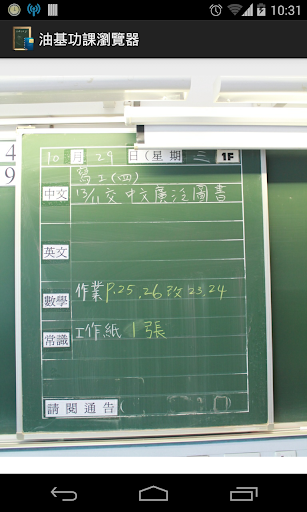 10:31
油基功課瀏覽器
10 月 29 日(星期 三 1F
寫工(四)
中文 13/11 交 中文廣泛圖書
英文
數學 作業P.25,26 改 23,24
常識 工作紙 1 張
請閱通告(
4
9